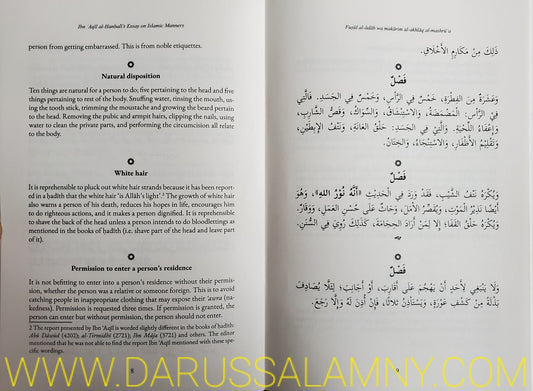 Ibn ʿAqīl al-Ḥanbalī's Essay on Islamic Manners
person from getting embarrassed. This is from noble etiquettes.
Natural disposition
Ten things are natural for a person to do; five pertaining to the head and five
things pertaining to rest of the body. Snuffing water, rinsing the mouth, us-
ing the tooth stick, trimming the moustache and growing the beard pertain
to the head. Removing the pubic and armpit hairs, clipping the nails, using
water to clean the private parts, and performing the circumcision all relate
to the body.
White hair
It is reprehensible to pluck out white hair strands because it has been report-
ed in a ḥadīth that the white hair "is Allāh's light'.² The growth of white hair
also warns a person of his death, reduces his hopes in life, encourages him
to do righteous actions, and it makes a person dignified. It is reprehensible
to shave the back of the head unless a person intends to do bloodlettings as
mentioned in the books of ḥadīth (i.e. shave part of the head and leave part
of it).
Permission to enter a person's residence
It is not befitting to enter into a person's residence without their permis-
sion, whether the person was a relative or someone foreign. This is to avoid
catching people in inappropriate clothing that may expose their ʿawra (na-
kedness). Permission is requested three times. If permission is granted, the
person can enter but without permission, the person should not enter.
2 The report presented by Ibn ʿAqīl is worded slightly different in the books of ḥadīth:
Abū Dāwūd (4202); al-Tirmidhī (2721); Ibn Māja (3721) and others. The editor
mentioned that he was not able to find the report Ibn ʿAqīl mentioned with these spe-
cific wordings.
8
Fuṣūl al-ādāb wa makārim al-akhlāq al-mashrūʿa
ذَلِكَ مِنْ مَكَارِمِ الْأَخْلَاقِ.
فَصْلٌ
وَعَشَرَةٌ مِنَ الْفِطْرَةِ، خَمْسٌ فِي الرَّأْسِ، وَخَمْسٌ فِي الْجَسَدِ. فَالَّتِي
فِي الرَّأْسِ: الْمَضْمَضَةُ، وَالِاسْتِنْشَاقُ، وَالسِّوَاكُ، وَقَصُّ الشَّارِبِ،
وَإِعْفَاءُ اللِّحْيَةِ. وَالَّتِي فِي الْجَسَدِ: حَلْقُ الْعَانَةِ، وَنَتْفُ الْإِبْطَيْنِ،
وَتَقْلِيمُ الْأَظْفَارِ، وَالِاسْتِنْجَاءُ، وَالْخِتَانُ.
فَصْلٌ
وَيُكْرَهُ نَتْفُ الشَّيْبِ، فَقَدْ وَرَدَ فِي الْحَدِيْثِ «أَنَّهُ نُوْرُ اللهِ»، وَهُوَ
أَيْضًا نَذِيْرُ الْمَوْتِ، وَيُقَصِّرُ الْأَمَلَ، وَحَاثٌّ عَلَى حُسْنِ الْعَمَلِ، وَوَقَارٌ.
وَيُكْرَهُ حَلْقُ الْقَفَا؛ إِلَّا لِمَنْ أَرَادَ الْحِجَامَةَ، كَذَلِكَ رُوِيَ فِي السُّنَنِ.
فَصْلٌ
وَلَا يَنْبَغِي لِأَحَدٍ أَنْ يَهْجُمَ عَلَى أَقَارِبَ، أَوْ أَجَانِبَ؛ لِئَلَّا يُصَادِفَ
بَذْلَةً مِنْ كَشْفِ عَوْرَةٍ، وَيَسْتَأْذِنُ ثَلَاثًا، فَإِنْ أُذِنَ لَهُ وَإِلَّا رَجَعَ.
9
WWW.DARUSSALAMNY.COM